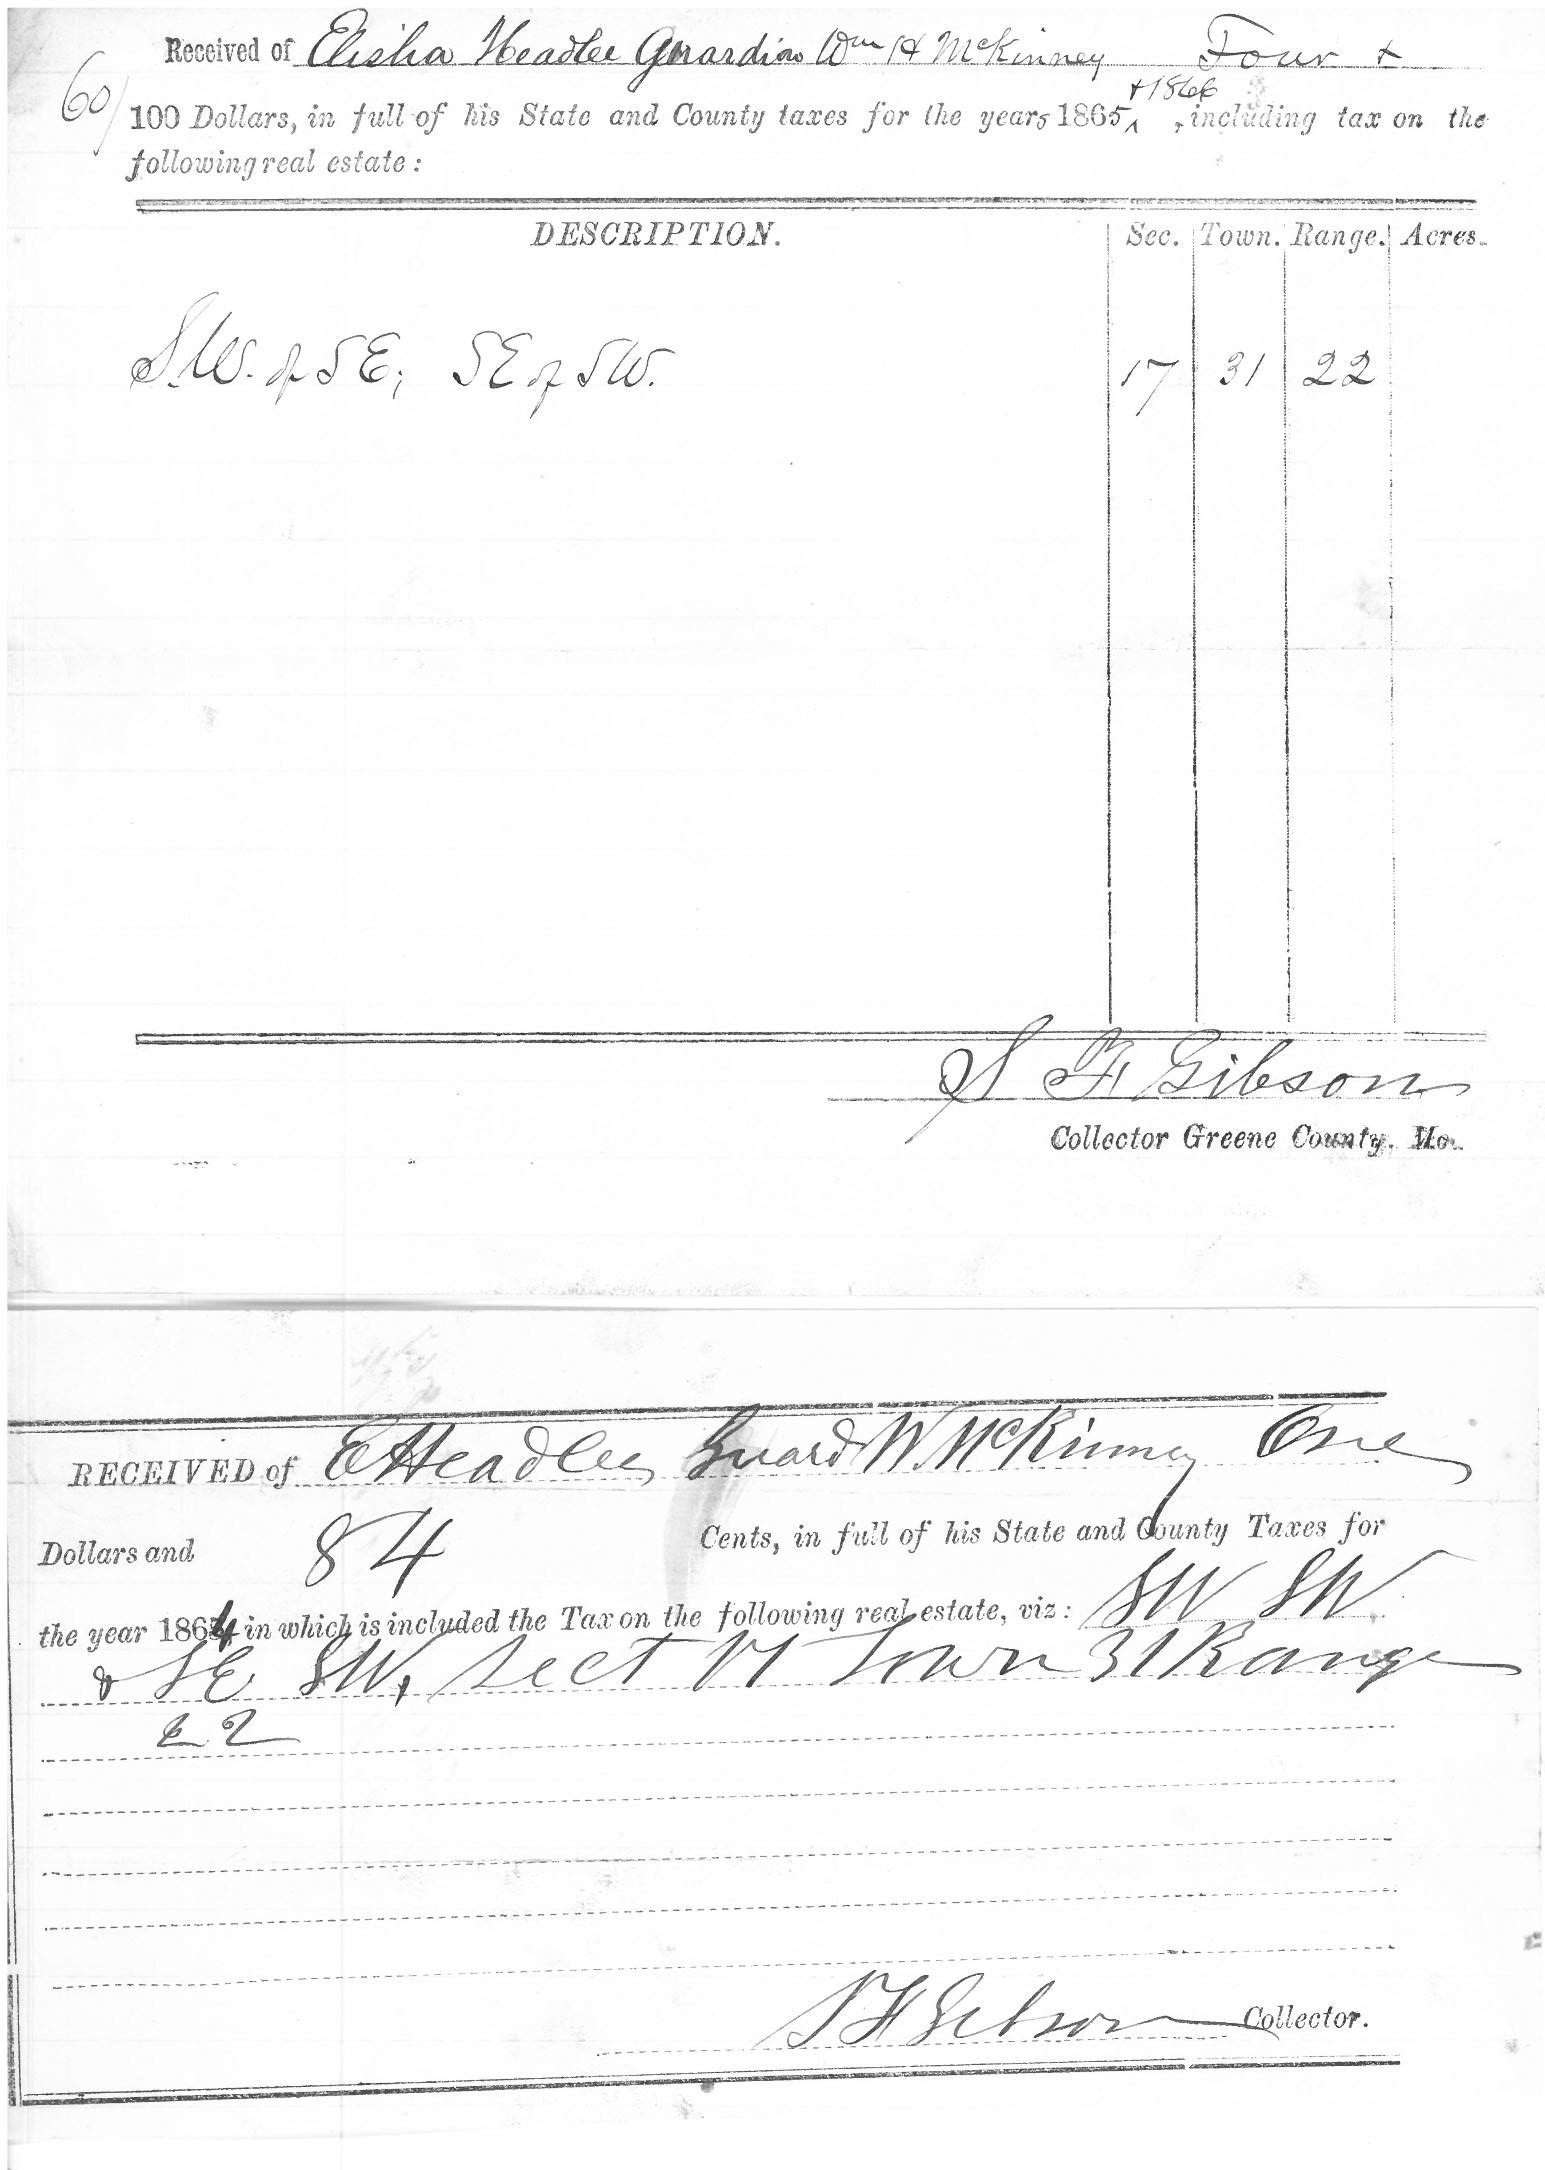 Received of Elisha Headlee Guardian Wm H McKinney Four &
+ 1866
60/100 Dollars, in full of his State and County taxes for the years 1865^, including tax on the
following real estate:
DESCRIPTION. Sec. Town. Range. Acres.
S.W. of SE; SE of SW. 17 31 22
S F Gibson
Collector Greene County, Mo.
RECEIVED of E Headlee Guard W. McKinney One
Dollars and 84 Cents, in full of his State and County Taxes for
the year 1864, in which is included the Tax on the following real estate, viz: SW SW
& SE SW, Sect 17 Town 31 Range
22
S F Gibson Collector.